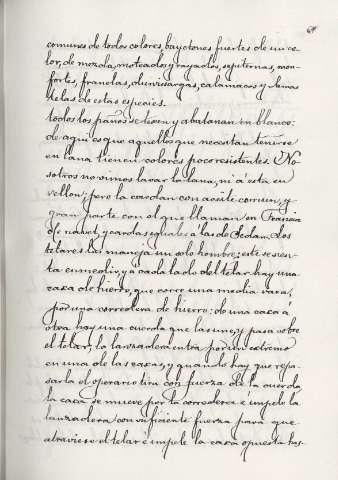 67
comunes de todos colores, bayetones fuertes de un co-
lor, de mezcla, moteados y rayados, sepiternas, mon-
fortes, franelas, duroisargas, calamacos y demas
telas de estas especies.
Todos los paños se tejen y abatanan en blanco:
de aqui es que aquellos que necesitan teñirse
en lana tienen colores poco resistentes. No-
sotros no vimos lavar la lana, ni á esta en
vellon; pero la cardan con aceite comun, y
gran parte con el que llaman en Francia
de nabet, y cardas eguales á las de Sedam. Los
telares los maneja un solo hombre; este se sien-
ta en medio, y a cada lado del telar hay una
caxa de hierro, que corre una media vara,
por una corredera de hierro: de una caxa á
otra hay una cuerda que las une, y pasa sobre
el telar, la lanzadera entra por un extremo
en una de las caxas, y quando hay que repa-
sarla el operario tira con fuerza de la cuerda
la caxa se mueve por la corredera é impele la
lanzadera con suficiente fuerza para que
atraviese el telar é impele la caxa opuesta has-